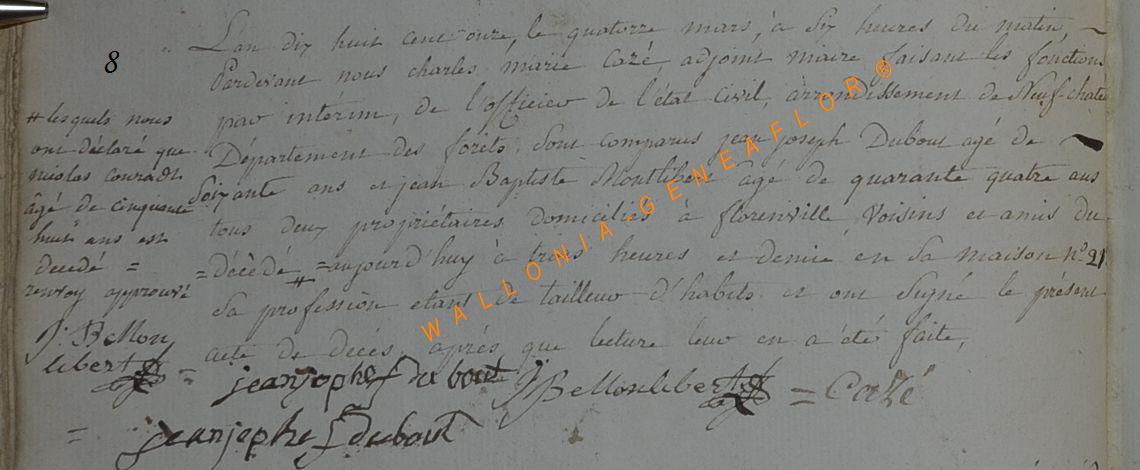 8
L'an dix huit cent onze, le quatorze mars, à six heures du matin,
Pardevant nous charles marie Cazé, adjoint maire faisant les fonctions
par intérim, de l'officier de l'état civil, arrondissement de Neufchateau
Département des forêts. Sont comparus jean joseph Dubout agé de
soixante ans et jean Baptiste Montlibert agé de quarante quatre ans
tous deux propriétaires domiciliés à florenville, voisins et amis du
= décédé = # aujourd'huy à trois heures et demie en sa maison n° 21
sa profession etant de tailleur d'habits et ont signé le présent
acte de décès, après que lecture leur en a été faite,
# lesquels nous
ont déclaré que
nicolas couradt
âgé de cinquante
huit ans est
decedé =
renvoy approuvé
J: B Mon
libert =
jeanjophe f dubout J B Monlibert = Cazé
= jeanjophe f dubout
WALLONIA GENEAFLOR ®